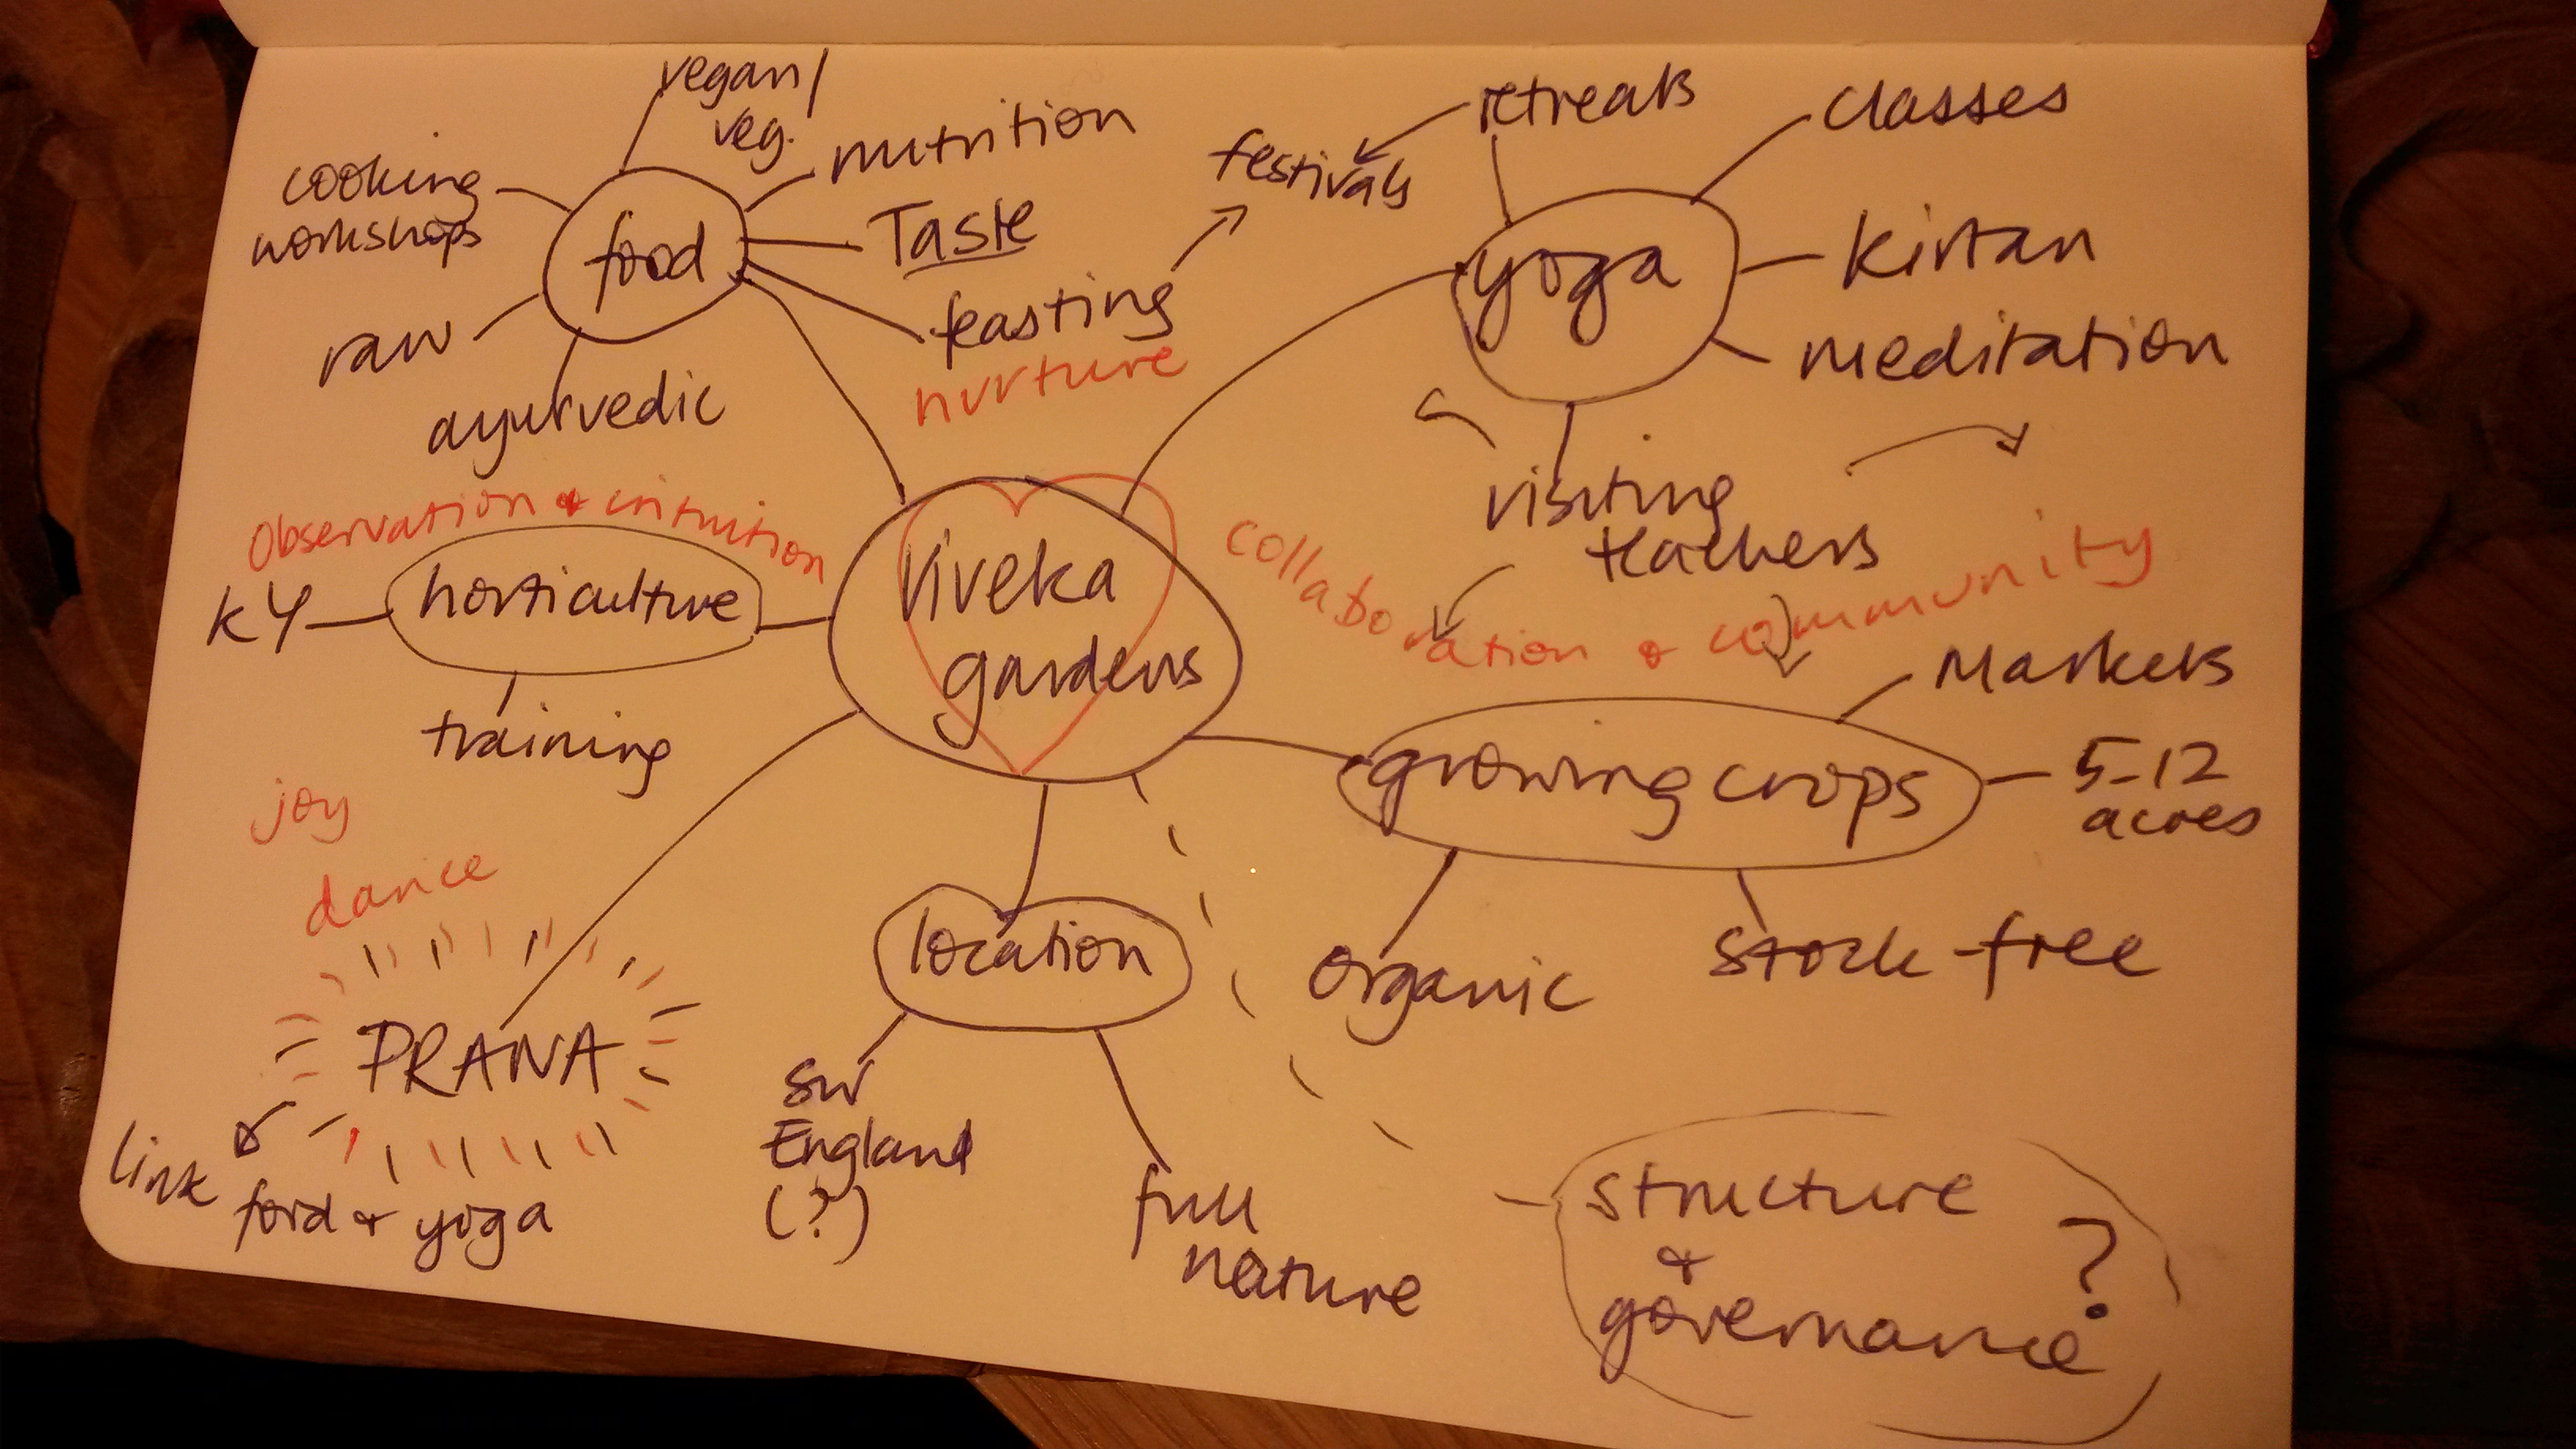 vegan/
veg.
nutrition
Taste
feasting
cooking
workshops
food
raw
ayurvedic
nurture
festivals
retreats
classes
yoga
Kirtan
meditation
visiting
teachers
Observation & intuition
KY
horticulture
training
Viveka
gardens
collaboration & community
Markets
growing crops
5-12
acres
organic
stock-free
joy
dance
PRANA
link
food & yoga
location
SW
England
(?)
full
nature
structure
&
governance
?